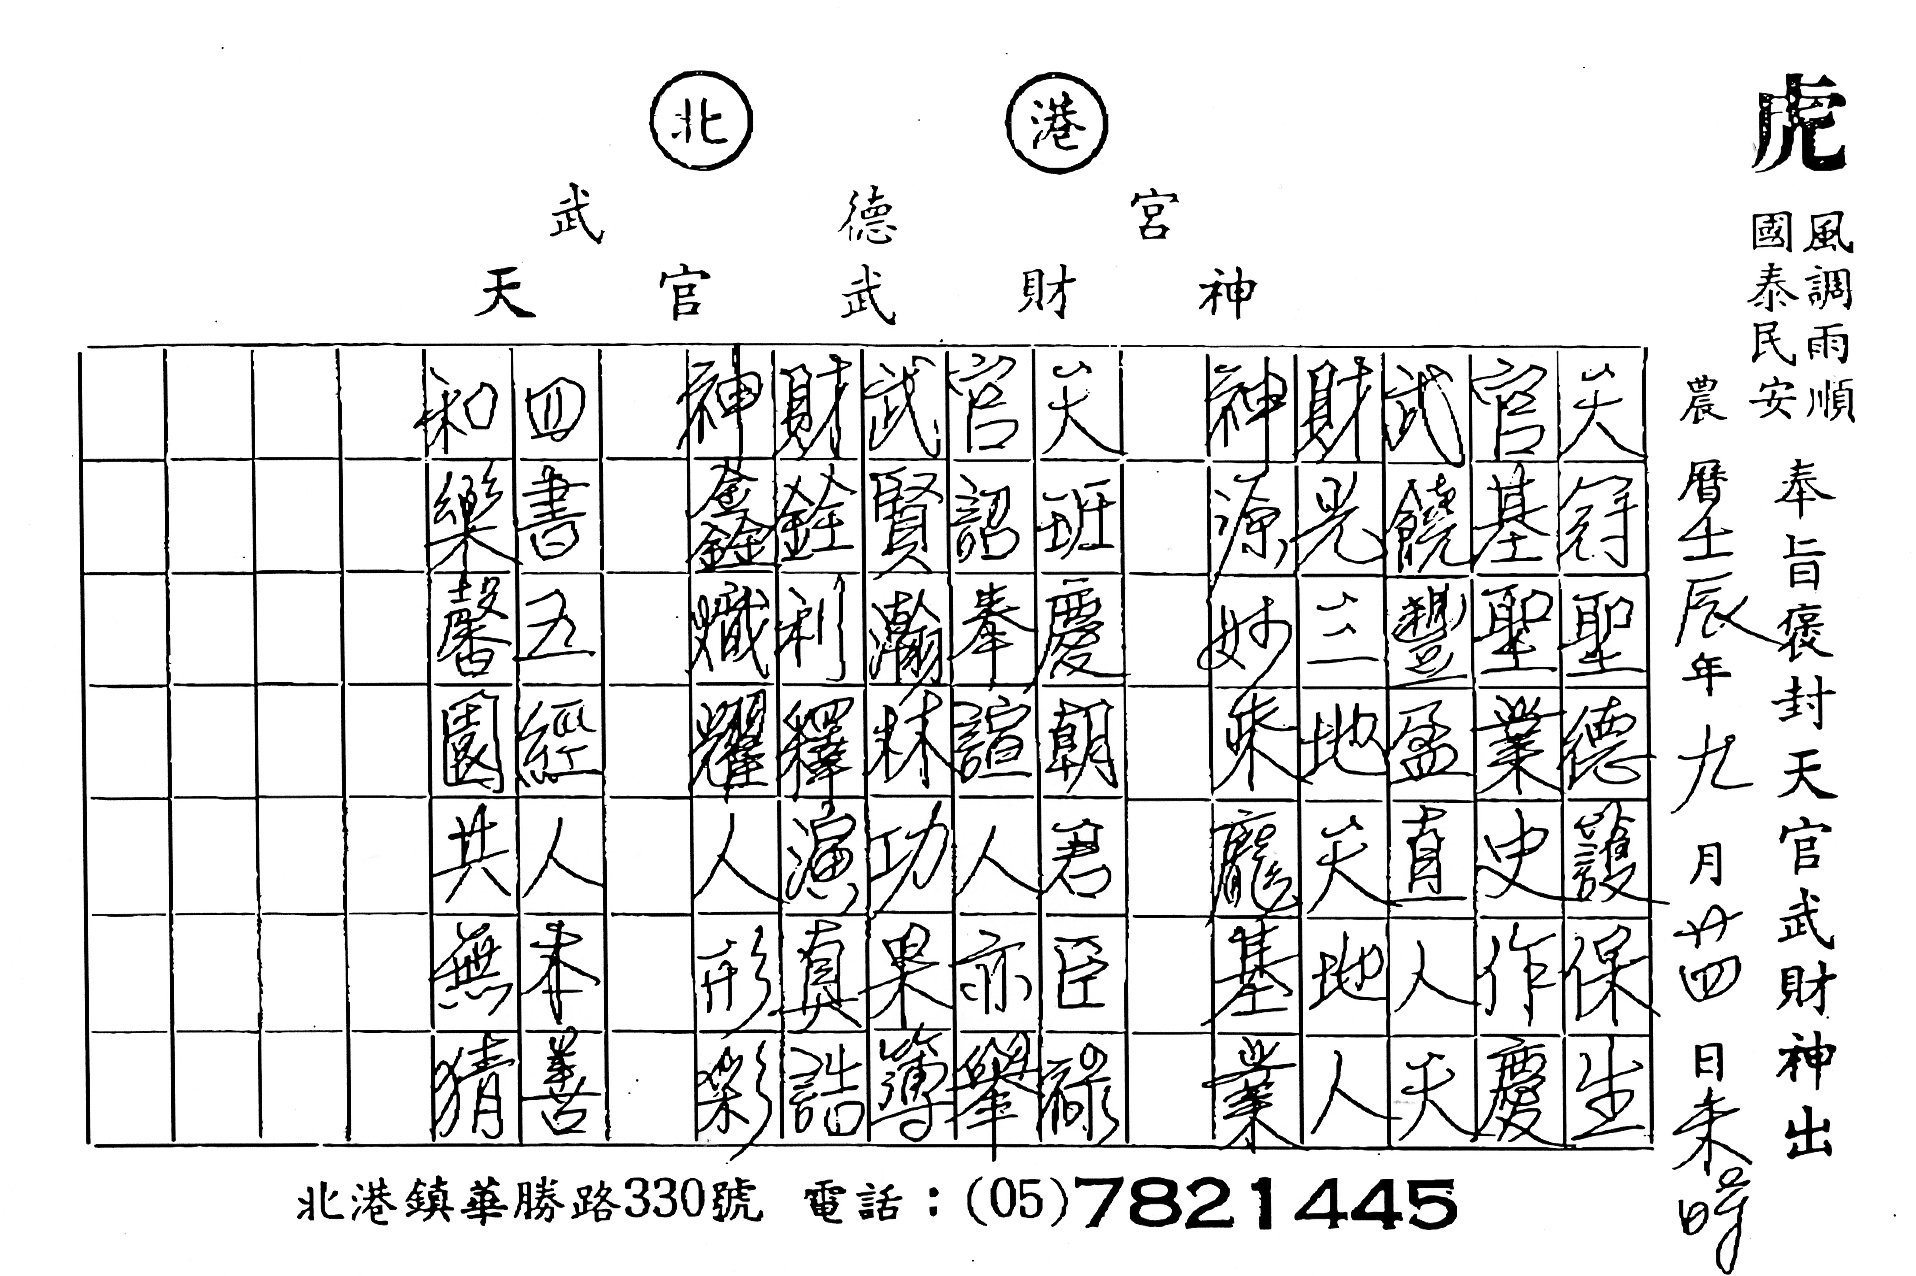 虎
風調雨順
國泰民安
奉旨褒封天官武財神出
農曆壬辰年九月廿四日未時
北港
武德宮
天官武財神
天符聖德護保生
官基聖業史作慶
武饒豐盈直人天
財見三地天地人
神源妙來龐基業
天班慶朝君臣祿
官詔奉諠人亦舉
武賢瀚林功果簿
財銓利釋濵真誥
神鑫熾耀人形彩
四書五經人本善
和樂馨園共無猜
北港鎮華勝路330號 電話：(05)7821445